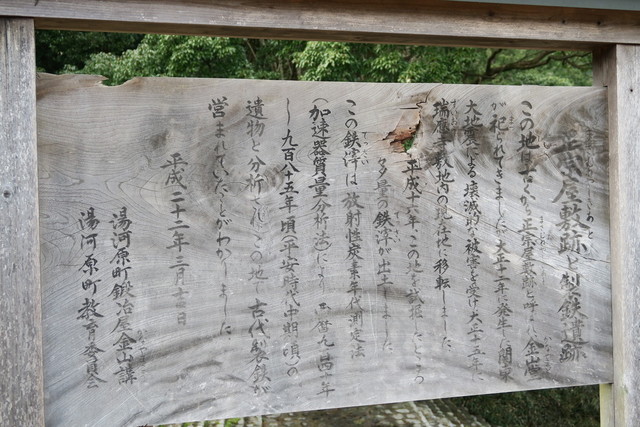 正宗屋敷跡と製鉄遺跡
この地は古くから正宗屋敷跡と呼ばれ、金山
が祀られてきました。大正十二年に発生した関東
大地震による壊滅的な被害を受け、大正十五年に
瑞応寺敷地内の現在地に移転しました。
平成十 年、この地を試掘したところ
多量の鉄滓が出土しました。
この鉄滓は放射性炭素年代測定法
(加速器質量分析法)により、西暦九 四十年
し九百八十五年頃(平安時代中期)頃の
遺物と分析され、この地で古代製鉄が
営まれていたことがわかりました。
平成二十二年三月十二日
湯河原町鍛冶屋金山講
湯河原町教育委員会